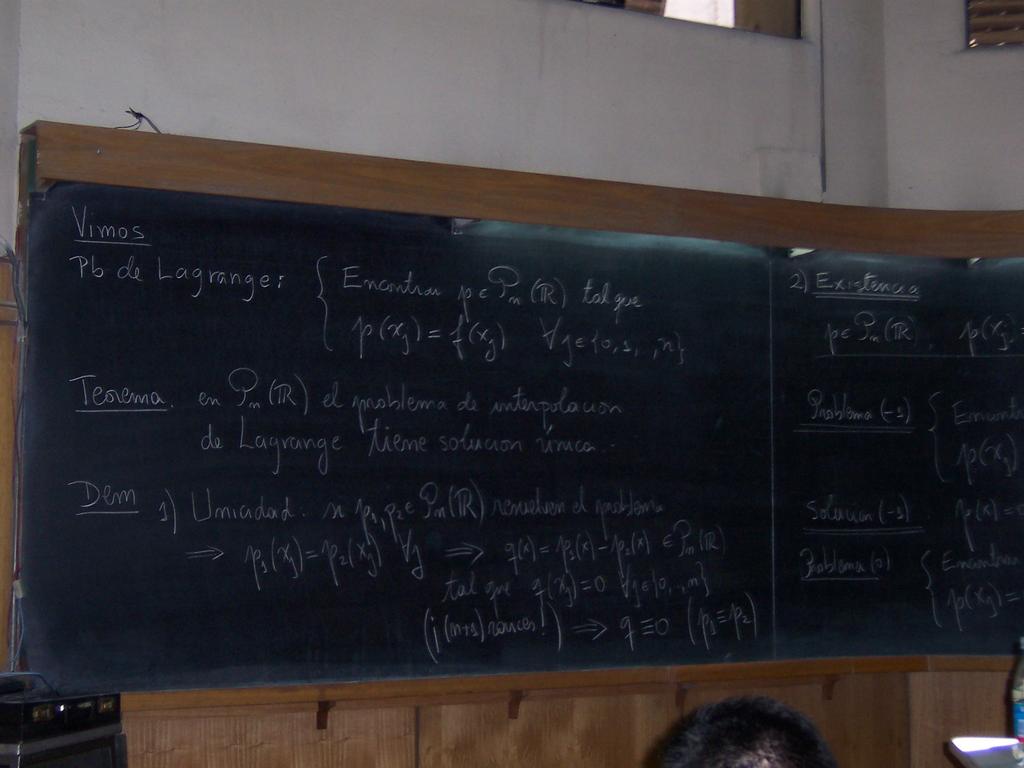 Vimos
Pb de Lagrange: { Encontrar p ∈ Pₙ(ℝ) tal que
p(xⱼ) = f(xⱼ) ∀j ∈ {0, 1, , n}
Teorema. en Pₙ(ℝ) el problema de interpolacion
de Lagrange tiene solucion única.
Dem 1) Unicidad. si p₁, p₂ ∈ Pₙ(ℝ) resuelven el problema
⟹ p₁(xⱼ) = p₂(xⱼ) ∀j ⟹ q(x) = p₁(x) - p₂(x) ∈ Pₙ(ℝ)
tal que q(xⱼ) = 0 ∀j ∈ {0, .., n}
(¡(n+1) raices!) ⟹ q ≡ 0 (p₁ ≡ p₂)
2) Existencia
p ∈ Pₙ(ℝ), p(xⱼ) =
Problema (-1) { Encontr
p(xⱼ)
Solucion (-1). p(x) =
Problema (0) { Encontra
p(xⱼ) =